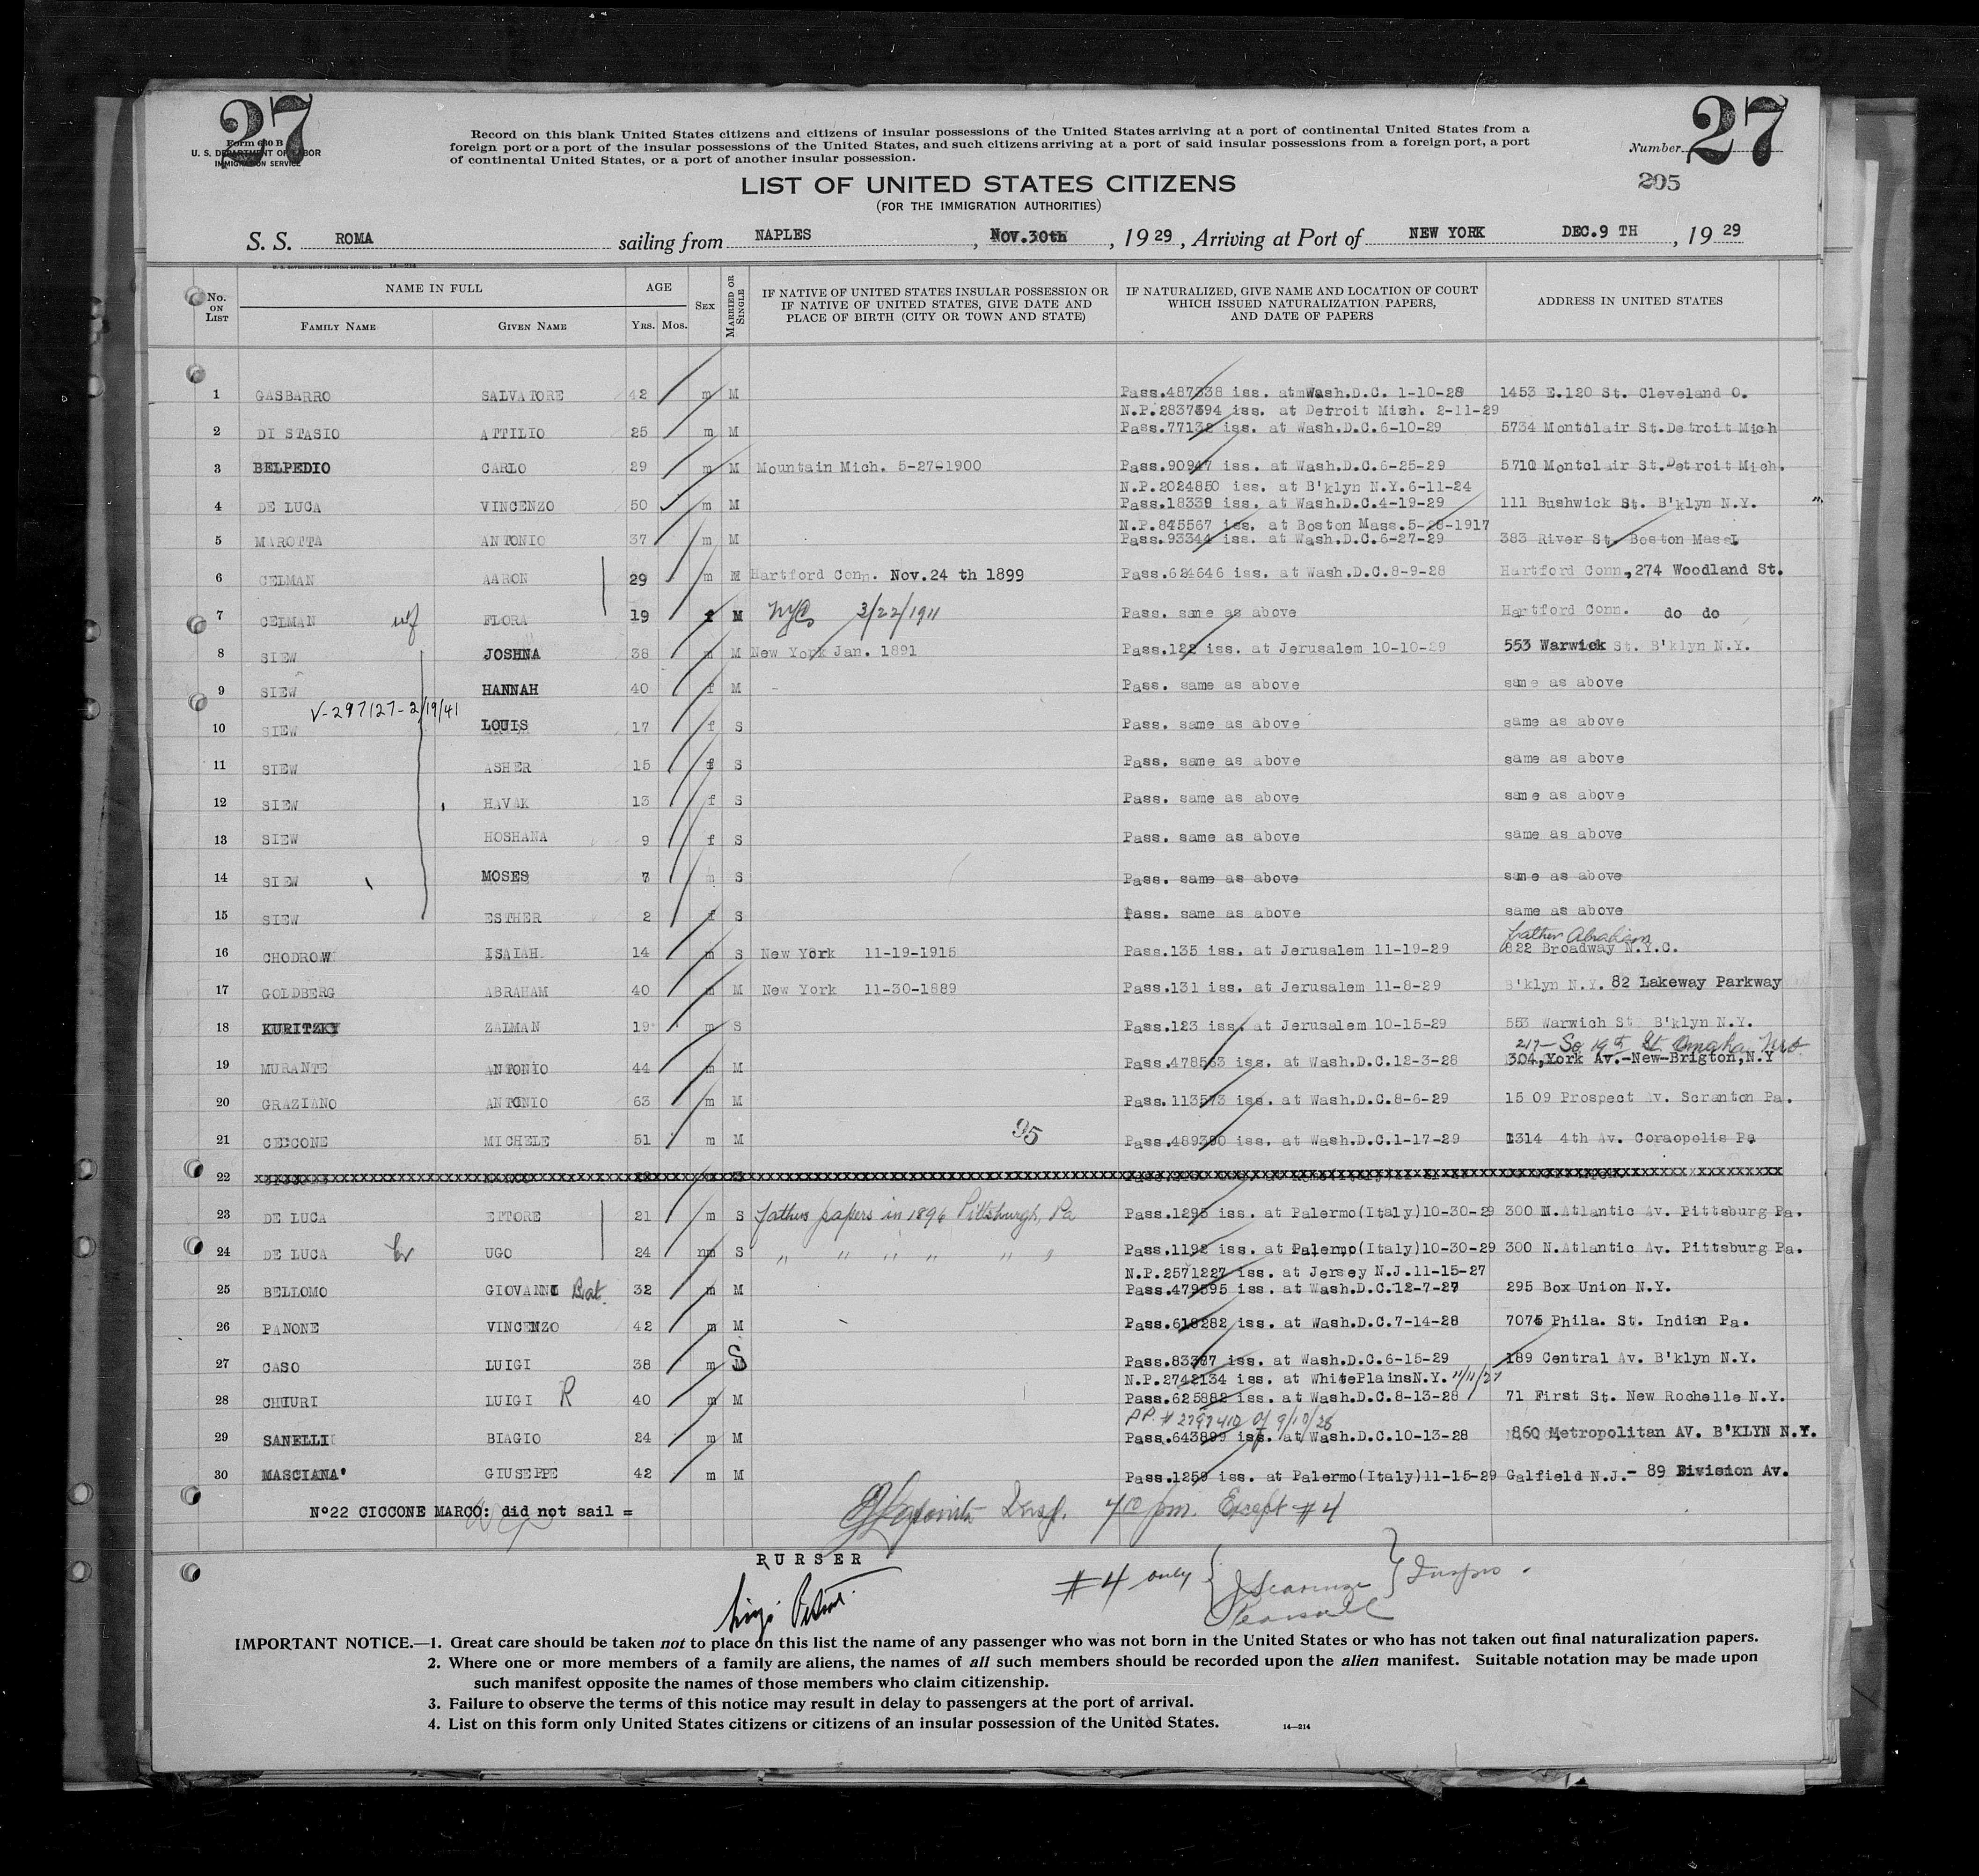 27
27
Form 630 B
U. S. DEPARTMENT OF LABOR
IMMIGRATION SERVICE
Record on this blank United States citizens and citizens of insular possessions of the United States arriving at a port of continental United States from a
foreign port or a port of the insular possessions of the United States, and such citizens arriving at a port of said insular possessions from a foreign port, a port
of continental United States, or a port of another insular possession.
Number
205
LIST OF UNITED STATES CITIZENS
(FOR THE IMMIGRATION AUTHORITIES)
S. S. ROMA sailing from NAPLES, Nov.30th, 1929, Arriving at Port of NEW YORK DEC.9 TH, 1929
No. ON LIST
NAME IN FULL
FAMILY NAME GIVEN NAME
AGE
Yrs. Mos.
SEX
MARRIED OR SINGLE
IF NATIVE OF UNITED STATES INSULAR POSSESSION OR
IF NATIVE OF UNITED STATES, GIVE DATE AND
PLACE OF BIRTH (CITY OR TOWN AND STATE)
IF NATURALIZED, GIVE NAME AND LOCATION OF COURT
WHICH ISSUED NATURALIZATION PAPERS,
AND DATE OF PAPERS
ADDRESS IN UNITED STATES
1 GASBARRO SALVATORE 42 m M Pass.487338 iss. at Wash.D.C. 1-10-28 1453 E.120 St. Cleveland O.
N.P.2837594 iss. at Detroit Mich. 2-11-29
2 DI STASIO ATTILIO 25 m M Pass.77132 iss. at Wash.D.C.6-10-29 5734 Montclair St.Detroit Mich
3 BELPEDIO CARLO 29 m M Mountain Mich. 5-27-1900 Pass.90947 iss. at Wash.D.C.6-25-29 5710 Montclair St.Detroit Mich.
N.P.2024850 iss. at B'klyn N.Y.6-11-24
4 DE LUCA VINCENZO 50 m M Pass.18339 iss. at Wash.D.C.4-19-29 111 Bushwick St. B'klyn N.Y.
N.P.845567 iss. at Boston Mass.5-28-1917
5 MAROTTA ANTONIO 37 m M Pass.93344 iss. at Wash.D.C.6-27-29 383 River St. Boston Mass
6 CELMAN AARON 29 m M Hartford Conn. Nov.24 th 1899 Pass.624646 iss. at Wash.D.C.8-9-28 Hartford Conn.,274 Woodland St.
7 CELMAN wf FLORA 19 f M NYC 3/22/1911 Pass. same as above Hartford Conn. do do
8 SIEW JOSHNA 38 m M New York Jan. 1891 Pass.122 iss. at Jerusalem 10-10-29 553 Warwick St. B'klyn N.Y.
9 SIEW HANNAH 40 f M - Pass. same as above same as above
V-297127-2/19/41
10 SIEW LOUIS 17 f S Pass. same as above same as above
11 SIEW ASHER 15 f S Pass. same as above same as above
12 SIEW HAVAK 13 f S Pass. same as above same as above
13 SIEW HOSHANA 9 f S Pass. same as above same as above
14 SIEW MOSES 7 m S Pass. same as above same as above
15 SIEW ESTHER 2 f S Pass. same as above same as above
father Abraham
16 CHODROW ISAIAH 14 m S New York 11-19-1915 Pass.135 iss. at Jerusalem 11-19-29 822 Broadway N.Y.C.
17 GOLDBERG ABRAHAM 40 m M New York 11-30-1889 Pass.131 iss. at Jerusalem 11-8-29 B'klyn N.Y. 82 Lakeway Parkway
18 KURITZKY ZALMAN 19 m S Pass.123 iss. at Jerusalem 10-15-29 553 Warwich St B'klyn N.Y.
217- So 19th St Omaha
19 MURANTE ANTONIO 44 m M Pass.478563 iss. at Wash.D.C.12-3-28 304,York Av.-New-Brigton,N.Y
20 GRAZIANO ANTONIO 63 m M Pass.113573 iss. at Wash.D.C.8-6-29 15 09 Prospect Av. Scranton Pa.
95
21 CECCONE MICHELE 51 m M Pass.489390 iss. at Wash.D.C.1-17-29 1314 4th Av. Coraopolis Pa
22
23 DE LUCA ETTORE 21 m S fathers papers in 1896 Pittsburgh, Pa Pass.1295 iss. at Palermo(Italy)10-30-29 300 N.Atlantic Av. Pittsburg Pa.
24 DE LUCA br UGO 24 m S " " " " " " Pass.1192 iss. at Palermo(Italy)10-30-29 300 N.Atlantic Av. Pittsburg Pa.
N.P.2571227 iss. at Jersey N.J.11-15-27
25 BELLOMO GIOVANNI Bat. 32 m M Pass.479595 iss. at Wash.D.C.12-7-27 295 Box Union N.Y.
26 PANONE VINCENZO 42 m M Pass.618282 iss. at Wash.D.C.7-14-28 7075 Phila. St. Indian Pa.
27 CASO LUIGI 38 m S Pass.83367 iss. at Wash.D.C.6-15-29 189 Central Av. B'klyn N.Y.
N.P.2742134 iss. at WhitePlainsN.Y. 11/11/27
28 CHIURI LUIGI R 40 m M Pass.625882 iss. at Wash.D.C.8-13-28 71 First St. New Rochelle N.Y.
P.P. # 2797410 of 9/10/28
29 SANELLI BIAGIO 24 m M Pass.643899 iss. at Wash.D.C.10-13-28 860 Metropolitan AV. B'KLYN N.Y.
30 MASCIANA' GIUSEPPE 42 m M Pass.1259 iss. at Palermo(Italy)11-15-29 Galfield N.J.- 89 Division Av.
N°22 CICCONE MARCO: did not sail =
Insp. 4 10 pm. Except #4
PURSER
#4 only
IMPORTANT NOTICE.—1. Great care should be taken not to place on this list the name of any passenger who was not born in the United States or who has not taken out final naturalization papers.
2. Where one or more members of a family are aliens, the names of all such members should be recorded upon the alien manifest. Suitable notation may be made upon
such manifest opposite the names of those members who claim citizenship.
3. Failure to observe the terms of this notice may result in delay to passengers at the port of arrival.
4. List on this form only United States citizens or citizens of an insular possession of the United States.
14—214